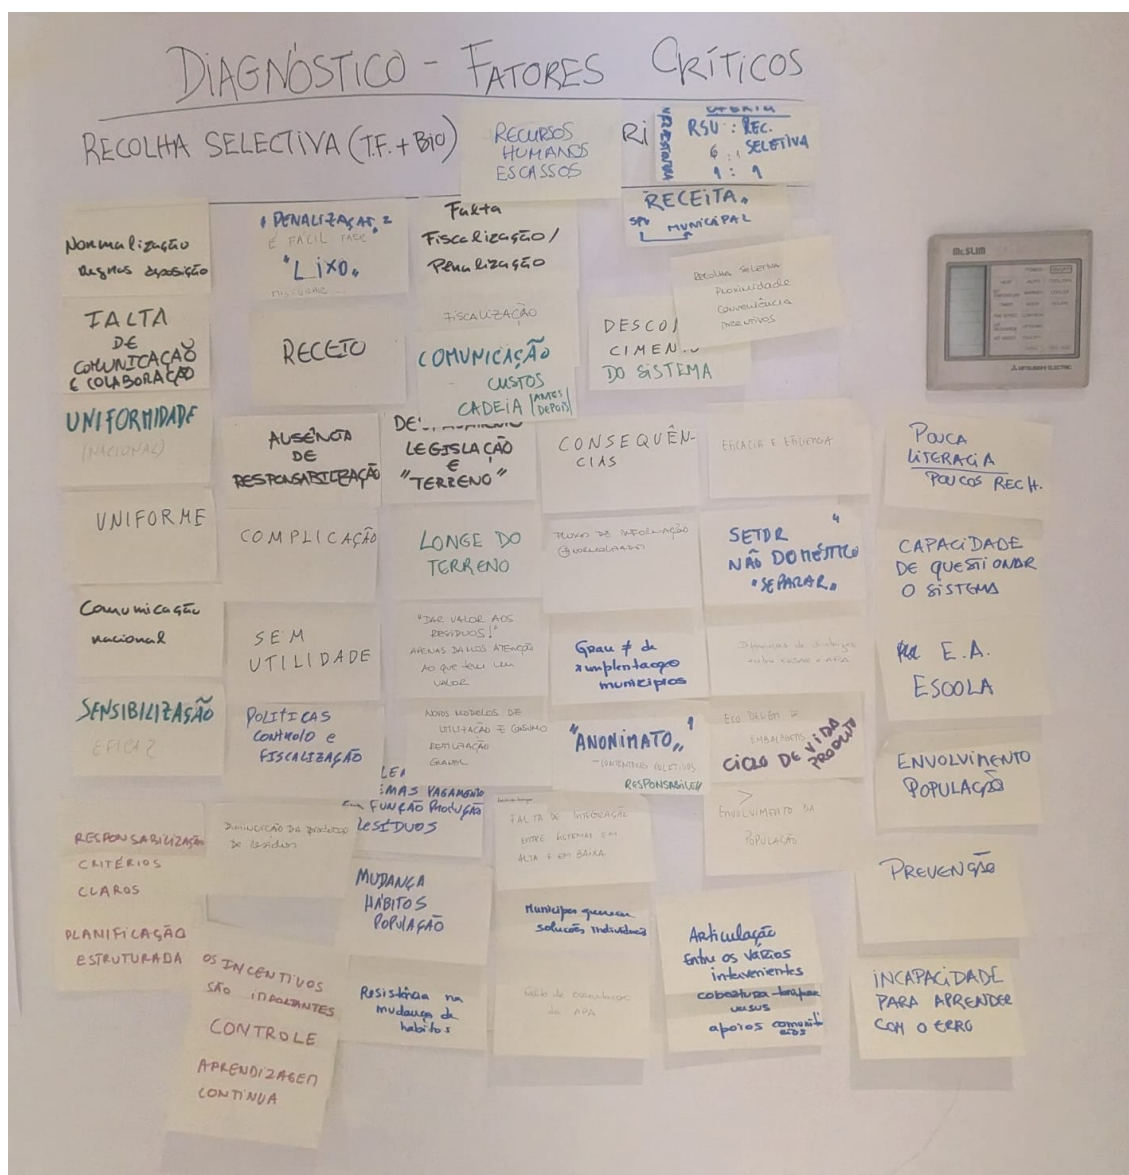 DIAGNÓSTICO - FATORES CRÍTICOS
RECOLHA SELECTIVA (T.F. + BIO)
RECURSOS
HUMANOS
ESCASSOS
RI
RSU : REC.
SELETIVA
6 : 1
1 : 1
RECEITA
MUNICIPAL
Normalização
Regras deposição
PENALIZAÇÃO
É FÁCIL
"LIXO"
Falta
Fiscalização/
Penalização
Recolha Seletiva
Proximidade
Conveniência
Incentivos
FALTA
DE
COMUNICAÇÃO
E COLABORAÇÃO
RECEIO
FISCALIZAÇÃO
COMUNICAÇÃO
CUSTOS
CADEIA (ANTES
DEPOIS)
DESCO
CIMEN
DO SISTEMA
UNIFORMIDADE
(NACIONAL)
AUSÊNCIA
DE
RESPONSABILIZAÇÃO
LEGISLAÇÃO
E
"TERRENO"
CONSEQUÊN-
CIAS
EFICÁCIA E EFICIÊNCIA
POUCA
LITERACIA
POUCOS RECH.
UNIFORME
COMPLICAÇÃO
LONGE DO
TERRENO
FLUXOS DE INFORMAÇÃO
SETOR
NÃO DOMÉSTICO
"SEPARAR"
CAPACIDADE
DE QUESTIONAR
O SISTEMA
Comunicação
nacional
SEM
UTILIDADE
"DAR VALOR AOS
RESÍDUOS!"
APENAS DAMOS ATENÇÃO
AO QUE TEM UM
VALOR
Grau ≠ de
implentação
municípios
E.A.
ESCOLA
SENSIBILIZAÇÃO
EFICAZ
POLÍTICAS
CONTROLO e
FISCALIZAÇÃO
NOVOS MODELOS DE
UTILIZAÇÃO E CONSUMO
REUTILIZAÇÃO
GRANEL
"ANONIMATO"
- CONTENTORES COLETIVOS
ECO DESIGN DE
EMBALAGENS
CICLO DE VIDA
PRODUTO
ENVOLVIMENTO
POPULAÇÃO
RESPONSABILIZAÇÃO
CRITÉRIOS
CLAROS
Diminuição da produção
de resíduos
FUNÇÃO PRODUÇÃO
FALTA DE INTEGRAÇÃO
ENTRE SISTEMAS EM
ALTA E EM BAIXA
>
ENVOLVIMENTO DA
POPULAÇÃO
PREVENÇÃO
PLANIFICAÇÃO
ESTRUTURADA
MUDANÇA
HÁBITOS
POPULAÇÃO
Munícipes querem
soluções individuais
Articulação
Entre os vários
intervenientes
OS INCENTIVOS
SÃO IMPORTANTES
CONTROLE
APRENDIZAGEM
CONTÍNUA
Resistência na
mudança de
hábitos
da APA
versus
apoios comunit
ários
INCAPACIDADE
PARA APRENDER
COM O ERRO
Mr.SLIM
MITSUBISHI ELECTRIC